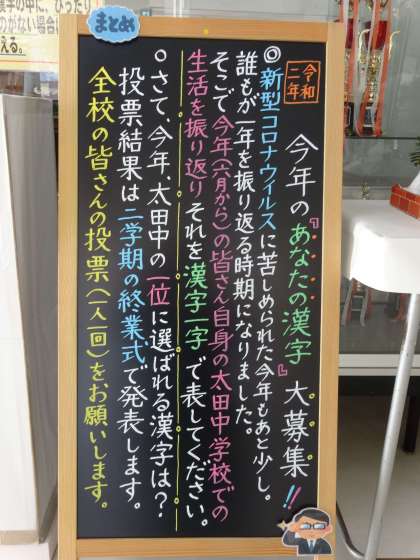 漢字の中に、ぴったり
のがない場合に
える。
まとめ
令和二年
今年の『あなたの漢字』大募集!!
◎新型コロナウィルスに苦しめられた今年もあと少し。
誰もが一年を振り返る時期になりました。
そこで今年(六月から)の皆さん自身の太田中学校での
生活を振り返りそれを漢字一字で表してください。
○さて、今年、太田中の一位に選ばれる漢字は?
投票結果は二学期の終業式で発表します。
全校の皆さんの投票(一人一回)を、お願いします。